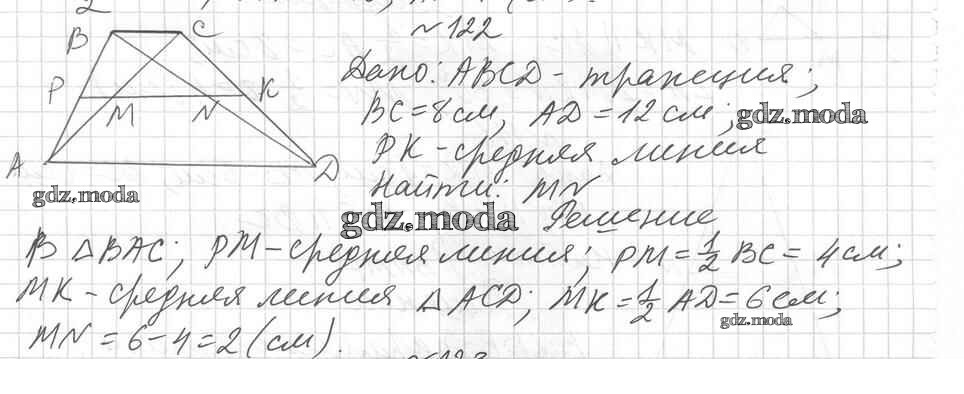 №122
B C
P M N K
A D
Дано: ABCD - трапеция;
BC = 8 см, AD = 12 см;
PK - средняя линия
Найти: MN
Решение
В △BAC; PM - средняя линия; PM = 1/2 BC = 4 см;
MK - средняя линия △ACD; MK = 1/2 AD = 6 см;
MN = 6 - 4 = 2 (см).
gdz.moda
gdz.moda
gdz.moda
gdz.moda